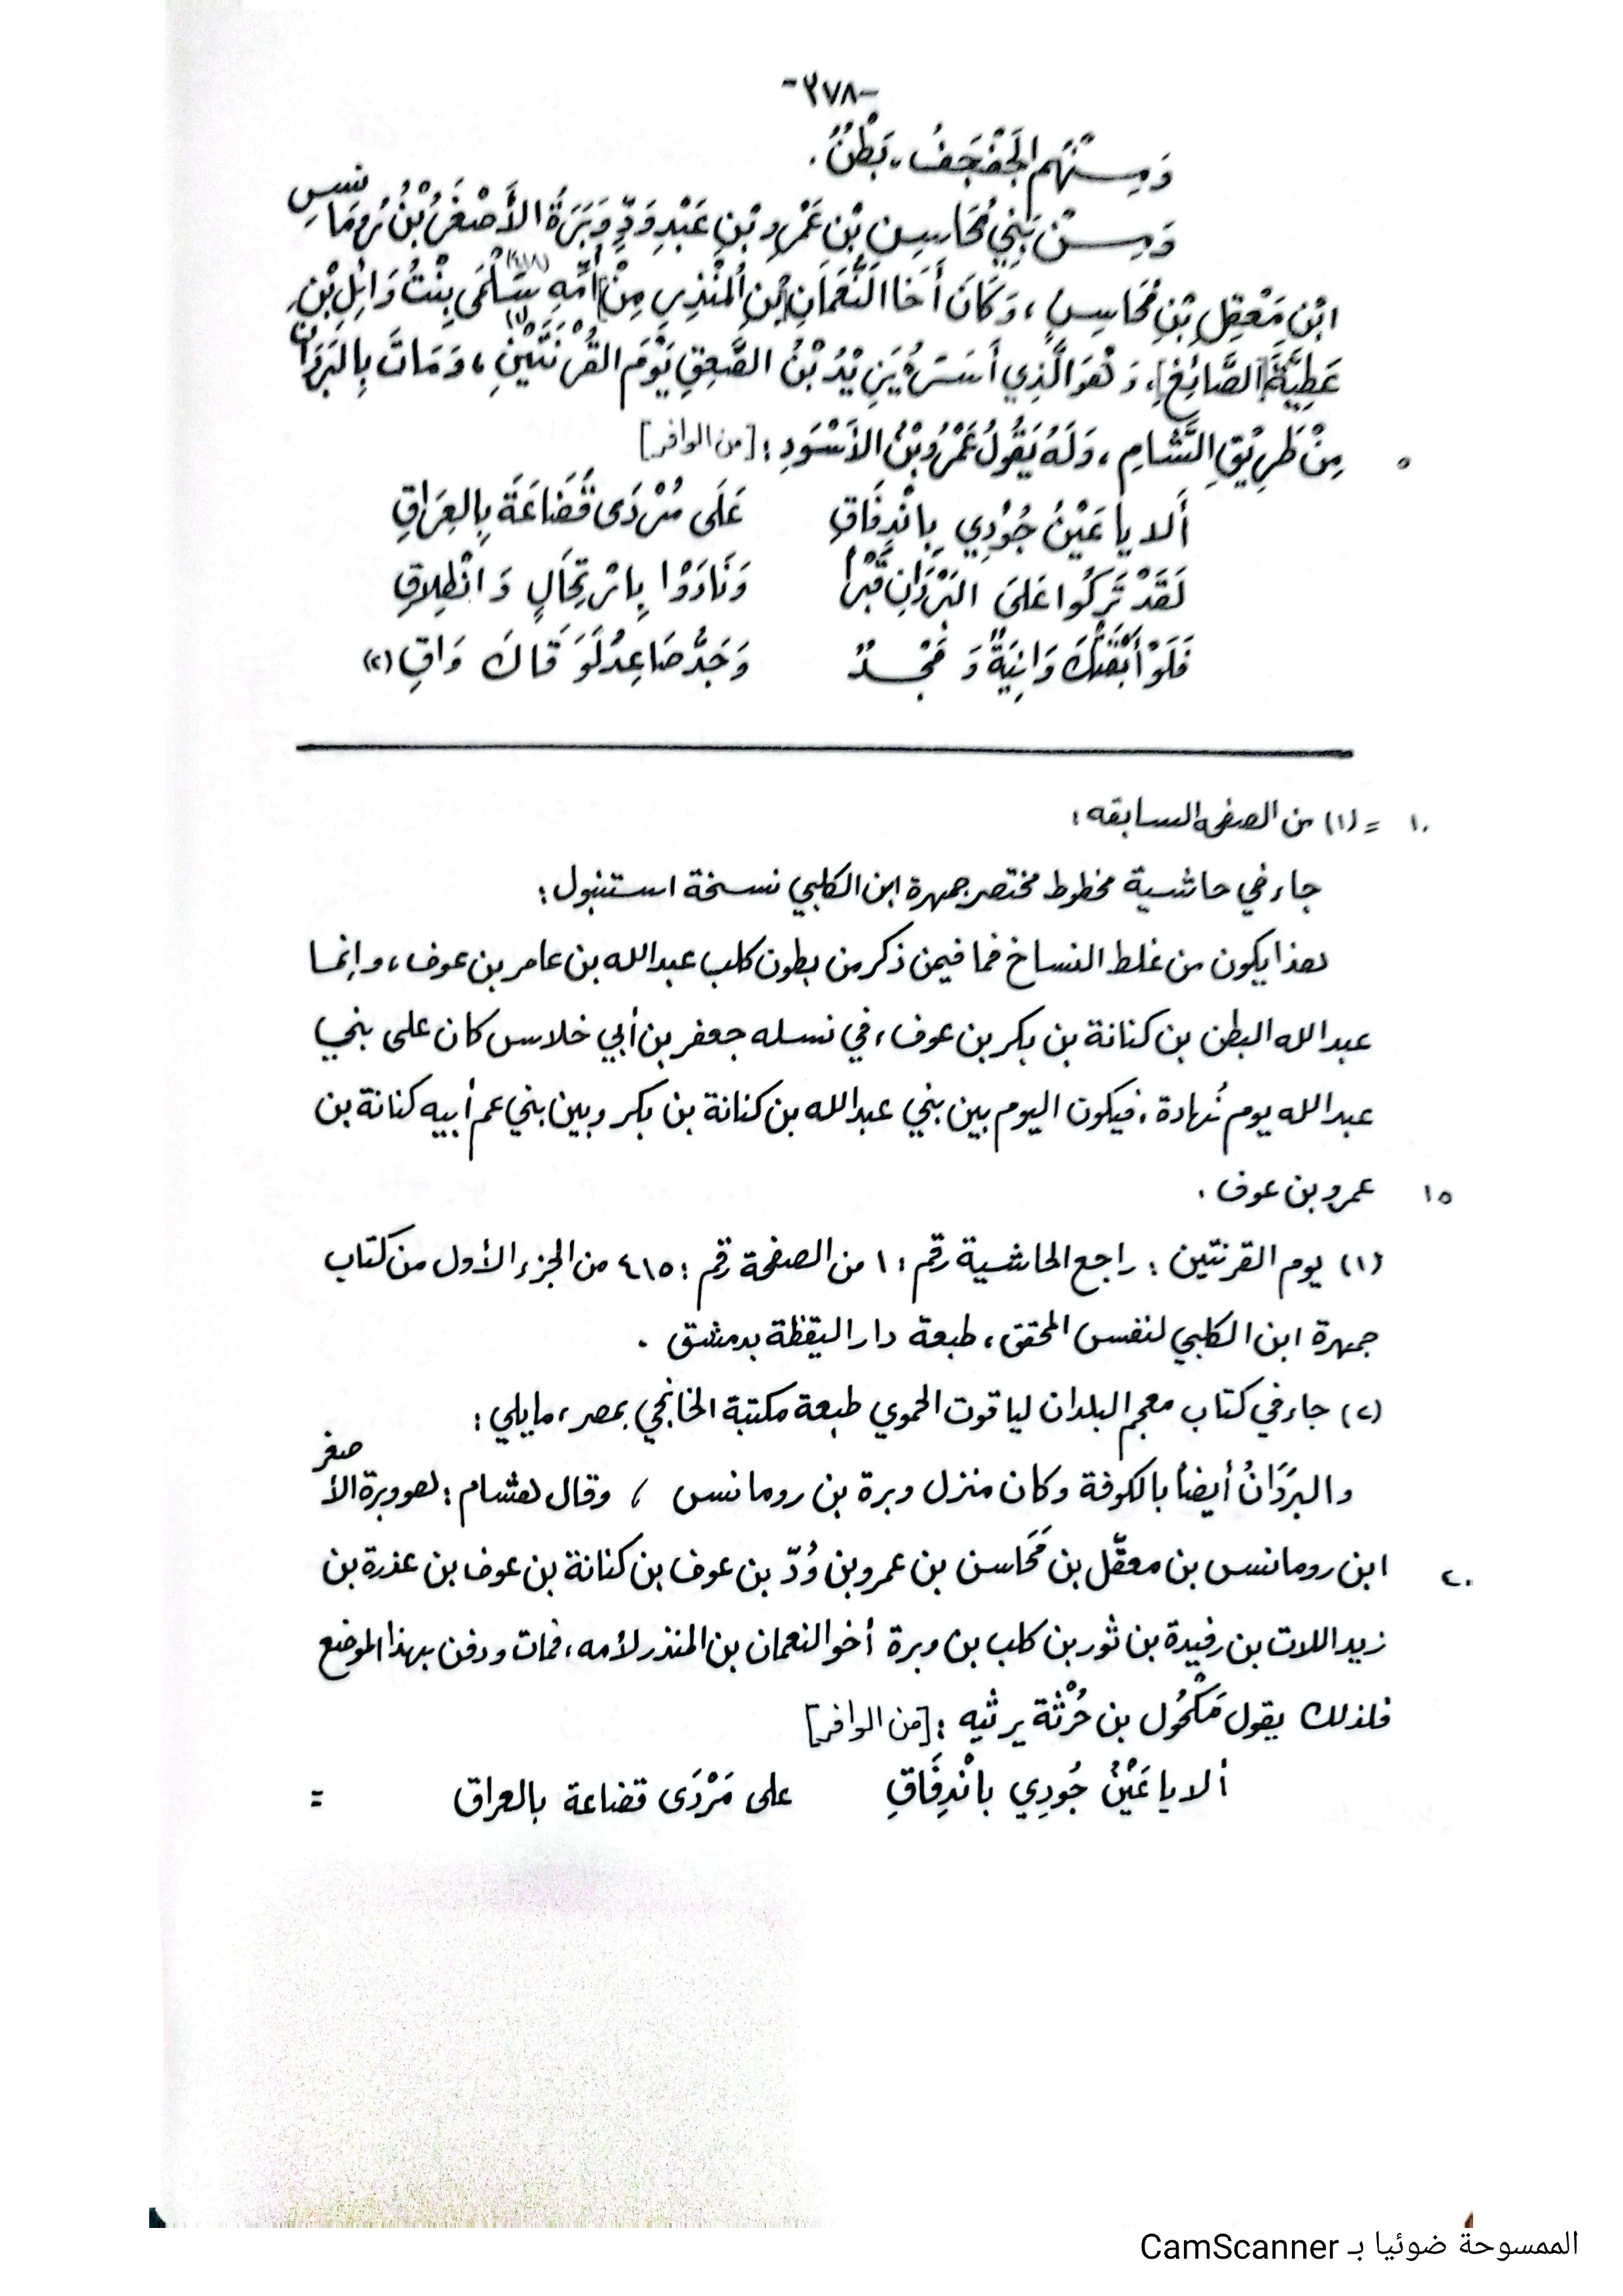 -٣٧٨-
وَمِنْهُم الجَفْجَفُ، بَطْنٌ.
وَمِنْ بَنِي مُحَاسِنِ بْنِ عَمْرِو بْنِ عَبْدِ وَدٍّ وَبَرَةُ الأَصْغَرُ بْنُ رُومَانِسِ
ابْنِ مَعْقِلِ بْنِ مُحَاسِنٍ، وَكَانَ أَخَا النُّعْمَانِ بْنِ المُنْذِرِ مِنْ أُمِّهِ سَلْمَى بِنْتُ وَائِلِ بْنِ
عَطِيَّةَ [الصَّائِغِ]، وَهُوَ الَّذِي أَسَرَهُ يَزِيْدُ بْنُ الصَّعِقِ يَوْمَ القُرْنَتَيْنِ (١)، وَمَاتَ بِالبَرَدَانِ
٥ مِنْ طَرِيْقِ الشَّامِ، وَلَهُ يَقُولُ عَمْرُو بْنُ الأَسْوَدِ: [من الوافر]
أَلا يا عَيْنُ جُوْدِي بِانْدِفَاقِ عَلَى مُرْدَى قُضَاعَةَ بِالعِرَاقِ
لَقَدْ تَرَكُوا عَلَى البَرَدَانِ قَبْراً وَنَادَوْا بِارْتِحَالٍ وَانْطِلاقِ
فَلَوْ أَبْقَتْكَ وَانِيَةٌ وَمَجْدٌ وَجَدٌّ صَاعِدٌ لَوَقَاكَ وَاقِ (٢)
١٠ = (١) من الصفحة السابقه:
جاء في حاشية مخطوط مختصر جمهرة ابن الكلبي نسخة استنبول:
هذا يكون من غلط النساخ فما فيمن ذكر من بطون كلب عبدالله بن عامر بن عوف، وإنما
عبدالله البطن بن كنانة بن بكر بن عوف، في نسله جعفر بن أبي خلاس كان على بني
عبدالله يوم نُهادة، فيكون اليوم بين بني عبدالله بن كنانة بن بكر وبين بني عم أبيه كنانة بن
١٥ عمرو بن عوف.
(١) يوم القرنتين: راجع الحاشية رقم: ١ من الصفحة رقم: ٤١٥ من الجزء الأول من كتاب
جمهرة ابن الكلبي لنفس المحقق، طبعة دار اليقظة بدمشق.
(٢) جاء في كتاب معجم البلدان لياقوت الحموي طبعة مكتبة الخانجي بمصر، مايلي:
والبَرَدَانُ أيضاً بالكوفة وكان منزل وبرة بن رومانس، وقال هشام: هو وبرة الأصغر
٢٠ ابن رومانس بن معقّل بن مَحَاسن بن عمرو بن وُدّ بن عوف بن كنانة بن عوف بن عذرة بن
زيد اللات بن رفيدة بن ثور بن كلب بن وبرة أخو النعمان بن المنذر لأمه، فمات ودفن بهذا الموضع
فلذلك يقول مَكْحُول بن حُرْثَة يرثيه: [من الوافر]
ألا يا عَيْنُ جُودِي بانْدِفَاقِ على مَرْدَى قضاعة بالعراق =
الممسوحة ضوئيا بـ CamScanner